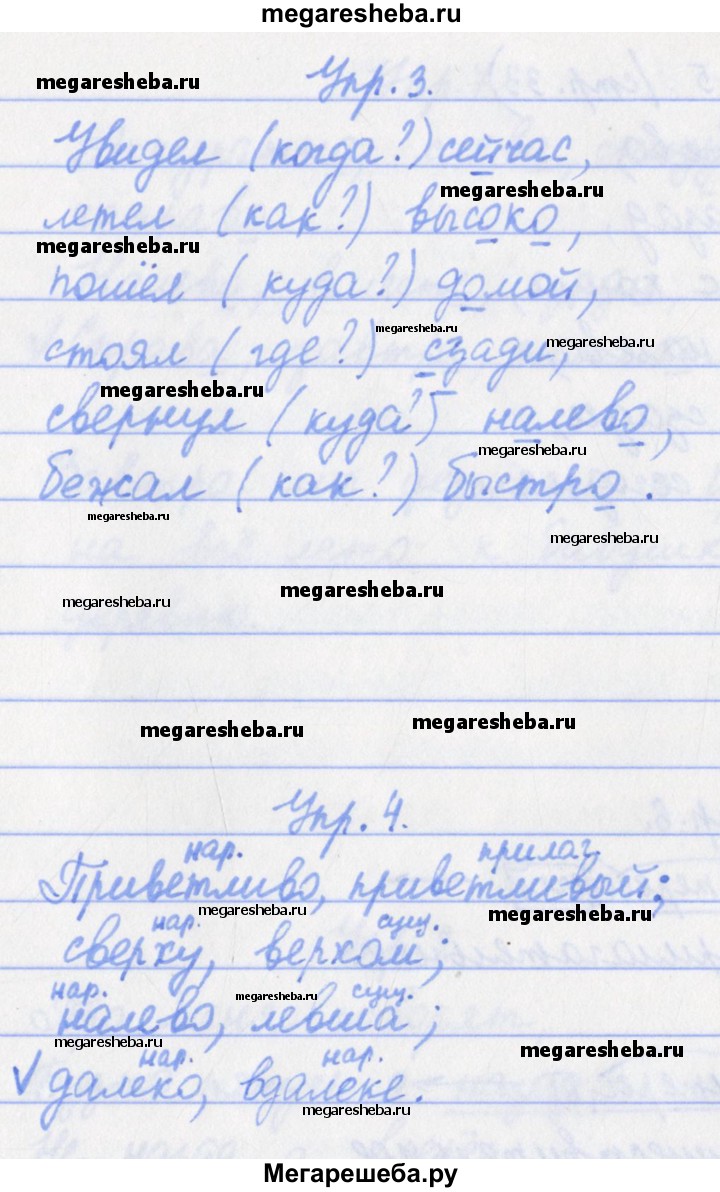 megaresheba.ru
Упр. 3.
megaresheba.ru
Увидел (когда?) сейчас,
megaresheba.ru
летел (как?) высоко,
megaresheba.ru
пошёл (куда?) домой,
megaresheba.ru
стоял (где?) сзади,
megaresheba.ru
megaresheba.ru
свернул (куда?) налево,
megaresheba.ru
бежал (как?) быстро.
megaresheba.ru
megaresheba.ru
megaresheba.ru
megaresheba.ru
megaresheba.ru
megaresheba.ru
Упр. 4.
нар. прилаг.
Приветливо, приветливый;
megaresheba.ru megaresheba.ru
нар. сущ.
сверху, верхом;
нар. megaresheba.ru сущ.
налево, левша;
megaresheba.ru megaresheba.ru
нар. нар.
√ далеко, вдалеке.
megaresheba.ru
Мегарешеба.ру